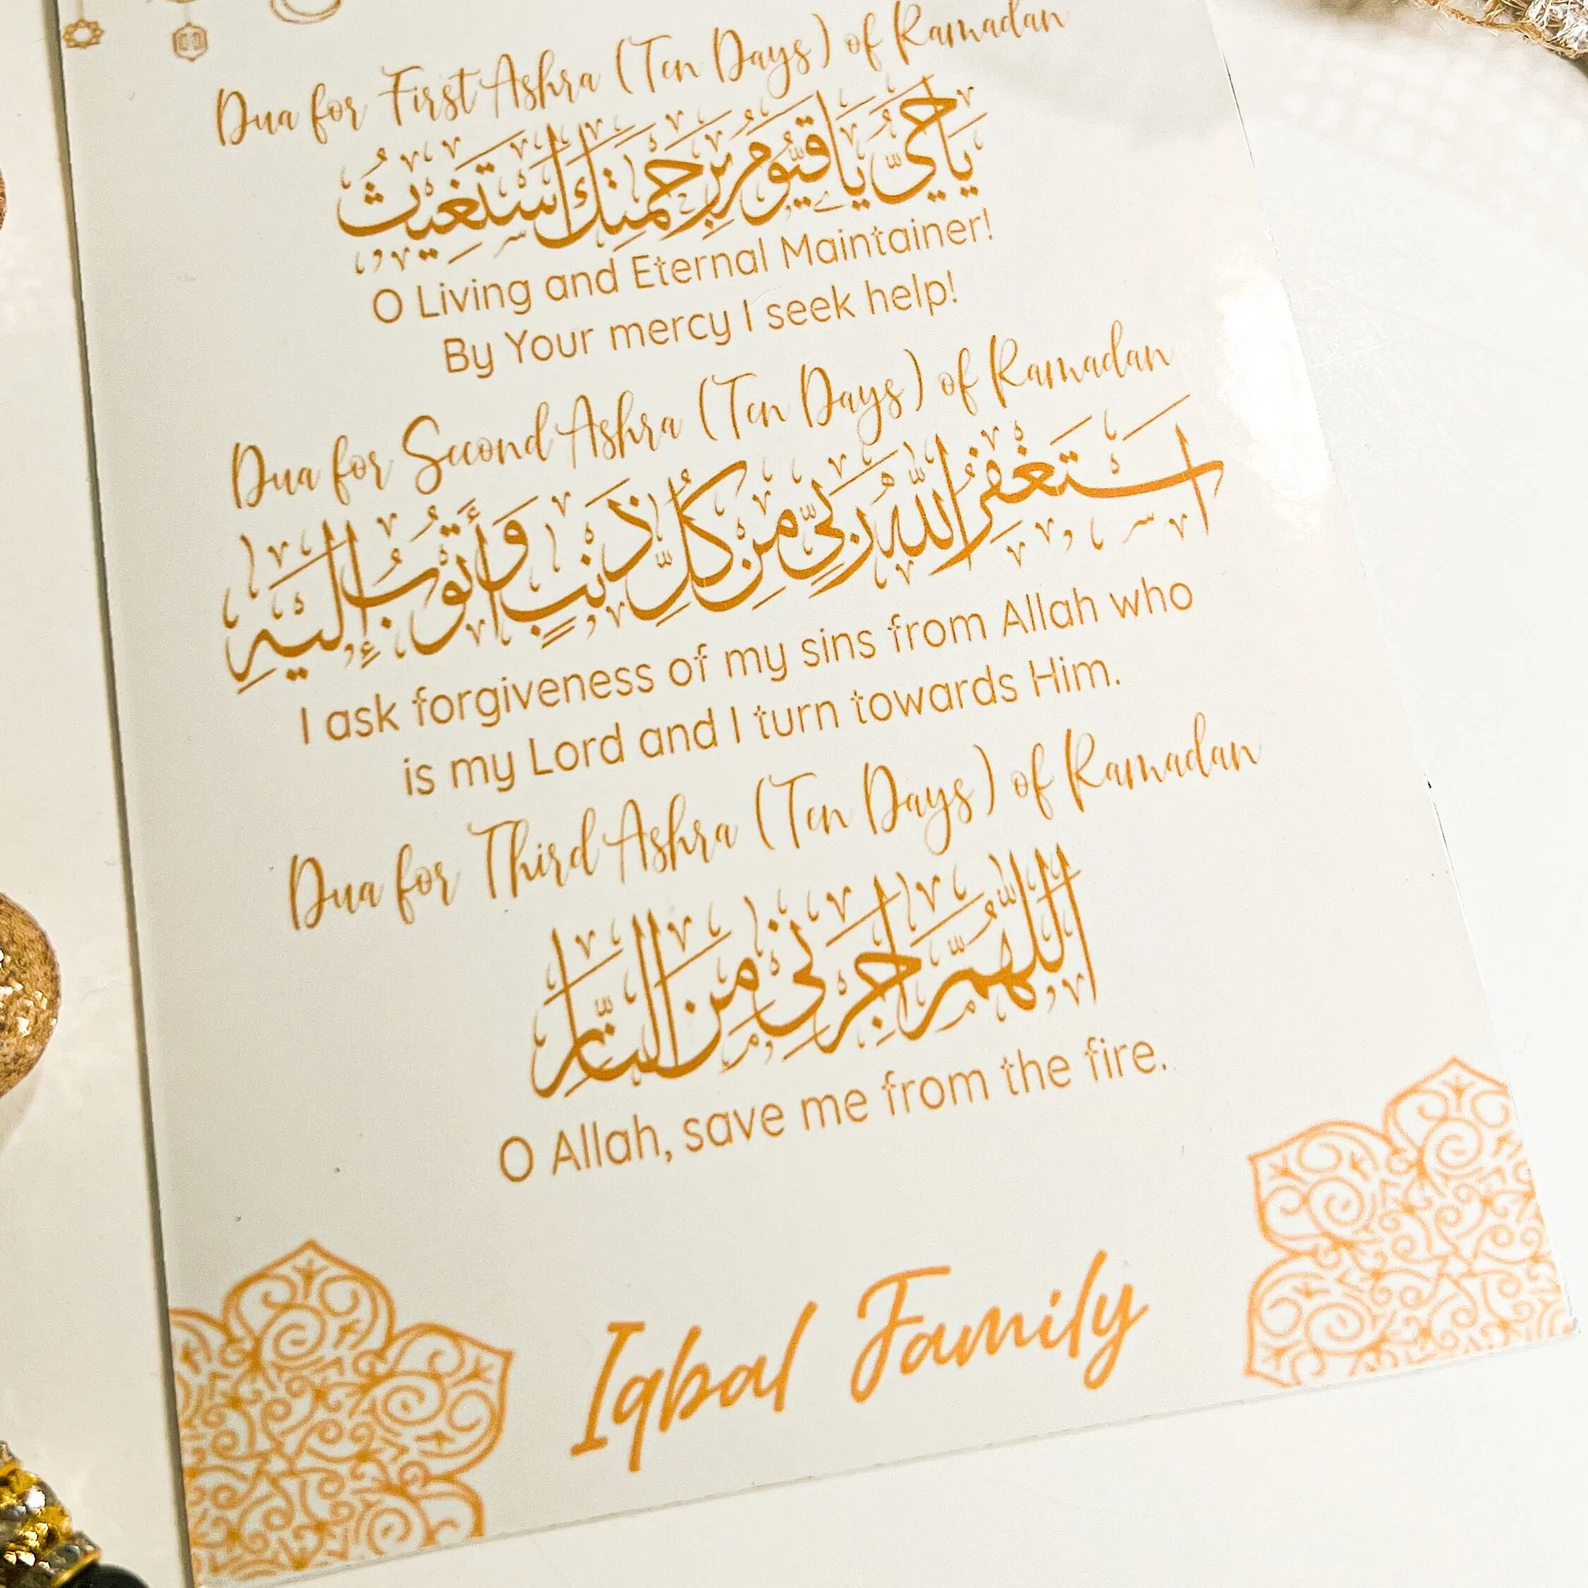 Dua for First Ashra (Ten Days) of Ramadan
يَاحَيُّ يَاقَيُّومُ بِرَحْمَتِكَ أَسْتَغِيثُ
O Living and Eternal Maintainer!
By Your mercy I seek help!
Dua for Second Ashra (Ten Days) of Ramadan
اسْتَغْفِرُ اللهَ رَبِّي مِنْ كُلِّ ذَنْبٍ وَأَتُوبُ إِلَيْهِ
I ask forgiveness of my sins from Allah who
is my Lord and I turn towards Him.
Dua for Third Ashra (Ten Days) of Ramadan
اللَّهُمَّ اجِرْنِي مِنَ النَّارِ
O Allah, save me from the fire.
Iqbal Family